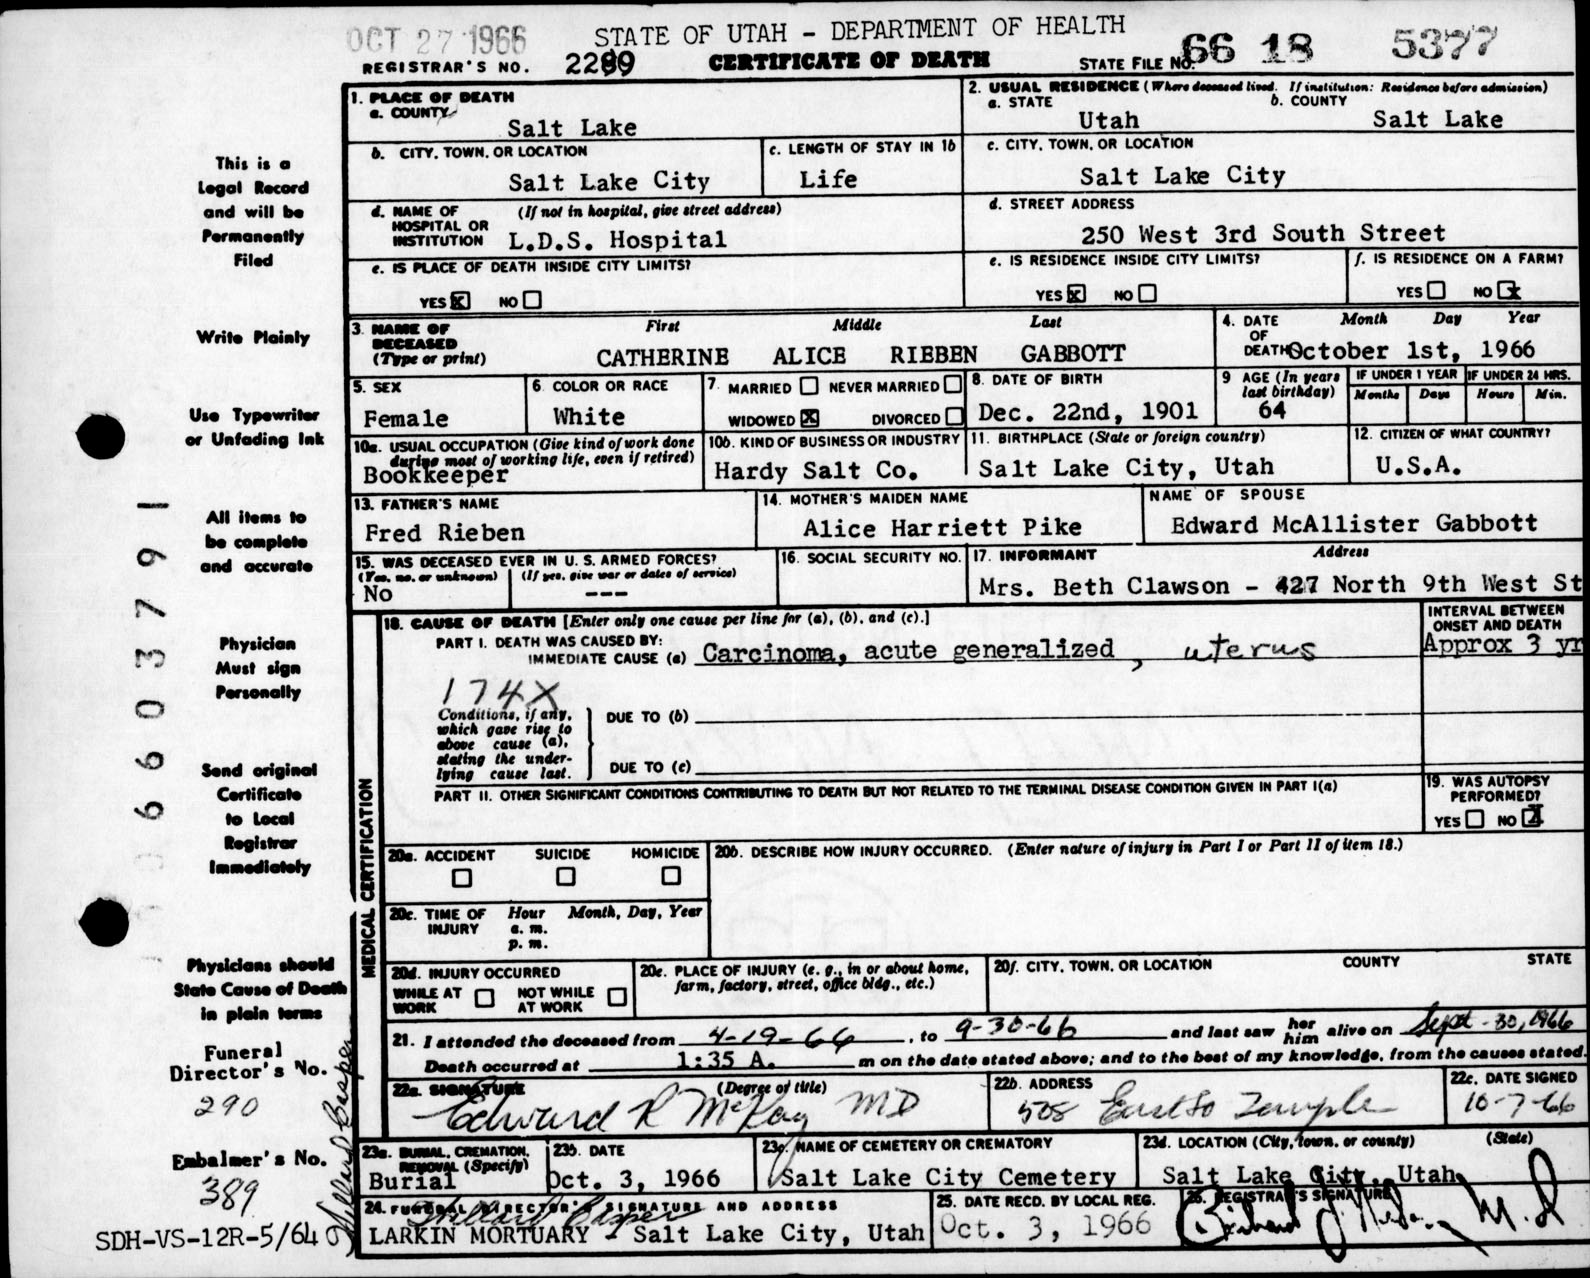 OCT 27 1966
STATE OF UTAH - DEPARTMENT OF HEALTH
REGISTRAR'S NO. 2289 CERTIFICATE OF DEATH STATE FILE NO. 66 18 5377
1. PLACE OF DEATH
a. COUNTY
Salt Lake
2. USUAL RESIDENCE (Where deceased lived. If institution: Residence before admission)
a. STATE b. COUNTY
Utah Salt Lake
b. CITY, TOWN, OR LOCATION
Salt Lake City
c. LENGTH OF STAY IN 1b
Life
c. CITY, TOWN, OR LOCATION
Salt Lake City
d. NAME OF (If not in hospital, give street address)
HOSPITAL OR
INSTITUTION L.D.S. Hospital
d. STREET ADDRESS
250 West 3rd South Street
e. IS PLACE OF DEATH INSIDE CITY LIMITS?
YES X NO
e. IS RESIDENCE INSIDE CITY LIMITS?
YES X NO
f. IS RESIDENCE ON A FARM?
YES NO X
3. NAME OF DECEASED
(Type or print)
First Middle Last
CATHERINE ALICE RIEBEN GABBOTT
4. DATE OF DEATH Month Day Year
October 1st, 1966
5. SEX
Female
6. COLOR OR RACE
White
7. MARRIED NEVER MARRIED
WIDOWED X DIVORCED
8. DATE OF BIRTH
Dec. 22nd, 1901
9 AGE (In years last birthday)
64
IF UNDER 1 YEAR IF UNDER 24 HRS.
Months Days Hours Min.
10a. USUAL OCCUPATION (Give kind of work done
during most of working life, even if retired)
Bookkeeper
10b. KIND OF BUSINESS OR INDUSTRY
Hardy Salt Co.
11. BIRTHPLACE (State or foreign country)
Salt Lake City, Utah
12. CITIZEN OF WHAT COUNTRY?
U.S.A.
13. FATHER'S NAME
Fred Rieben
14. MOTHER'S MAIDEN NAME
Alice Harriett Pike
NAME OF SPOUSE
Edward McAllister Gabbott
15. WAS DECEASED EVER IN U. S. ARMED FORCES?
(Yes, no, or unknown) (If yes, give war or dates of service)
No ---
16. SOCIAL SECURITY NO.
17. INFORMANT Address
Mrs. Beth Clawson - 427 North 9th West St
MEDICAL CERTIFICATION
18. CAUSE OF DEATH [Enter only one cause per line for (a), (b), and (c).]
PART I. DEATH WAS CAUSED BY:
IMMEDIATE CAUSE (a) Carcinoma, acute generalized, uterus
INTERVAL BETWEEN
ONSET AND DEATH
Approx 3 yr
174X
Conditions, if any,
which gave rise to
above cause (a),
stating the under-
lying cause last.
DUE TO (b)
DUE TO (c)
PART II. OTHER SIGNIFICANT CONDITIONS CONTRIBUTING TO DEATH BUT NOT RELATED TO THE TERMINAL DISEASE CONDITION GIVEN IN PART I(a)
19. WAS AUTOPSY
PERFORMED?
YES NO X
20a. ACCIDENT SUICIDE HOMICIDE
20b. DESCRIBE HOW INJURY OCCURRED. (Enter nature of injury in Part I or Part II of item 18.)
20c. TIME OF INJURY Hour Month, Day, Year
a. m.
p. m.
20d. INJURY OCCURRED
WHILE AT WORK NOT WHILE AT WORK
20e. PLACE OF INJURY (e. g., in or about home,
farm, factory, street, office bldg., etc.)
20f. CITY, TOWN, OR LOCATION COUNTY STATE
21. I attended the deceased from 4-19-66, to 9-30-66 and last saw her him alive on Sept - 30, 1966
Death occurred at 1:35 A. m on the date stated above; and to the best of my knowledge, from the causes stated.
22a. SIGNATURE (Degree of title)
Edward R McKay MD
22b. ADDRESS
508 East So Temple
22c. DATE SIGNED
10-7-66
23a. BURIAL, CREMATION,
REMOVAL (Specify)
Burial
23b. DATE
Oct. 3, 1966
23c. NAME OF CEMETERY OR CREMATORY
Salt Lake City Cemetery
23d. LOCATION (City, town, or county) (State)
Salt Lake City, Utah
24. FUNERAL DIRECTOR'S SIGNATURE AND ADDRESS
LARKIN MORTUARY - Salt Lake City, Utah
25. DATE RECD. BY LOCAL REG.
Oct. 3, 1966
26. REGISTRAR'S SIGNATURE
M.D
This is a
Legal Record
and will be
Permanently
Filed
Write Plainly
Use Typewriter
or Unfading Ink
All items to
be complete
and accurate
Physician
Must sign
Personally
Send original
Certificate
to Local
Registrar
Immediately
Physicians should
State Cause of Death
in plain terms
Funeral
Director's No.
290
Embalmer's No.
389
SDH-VS-12R-5/64